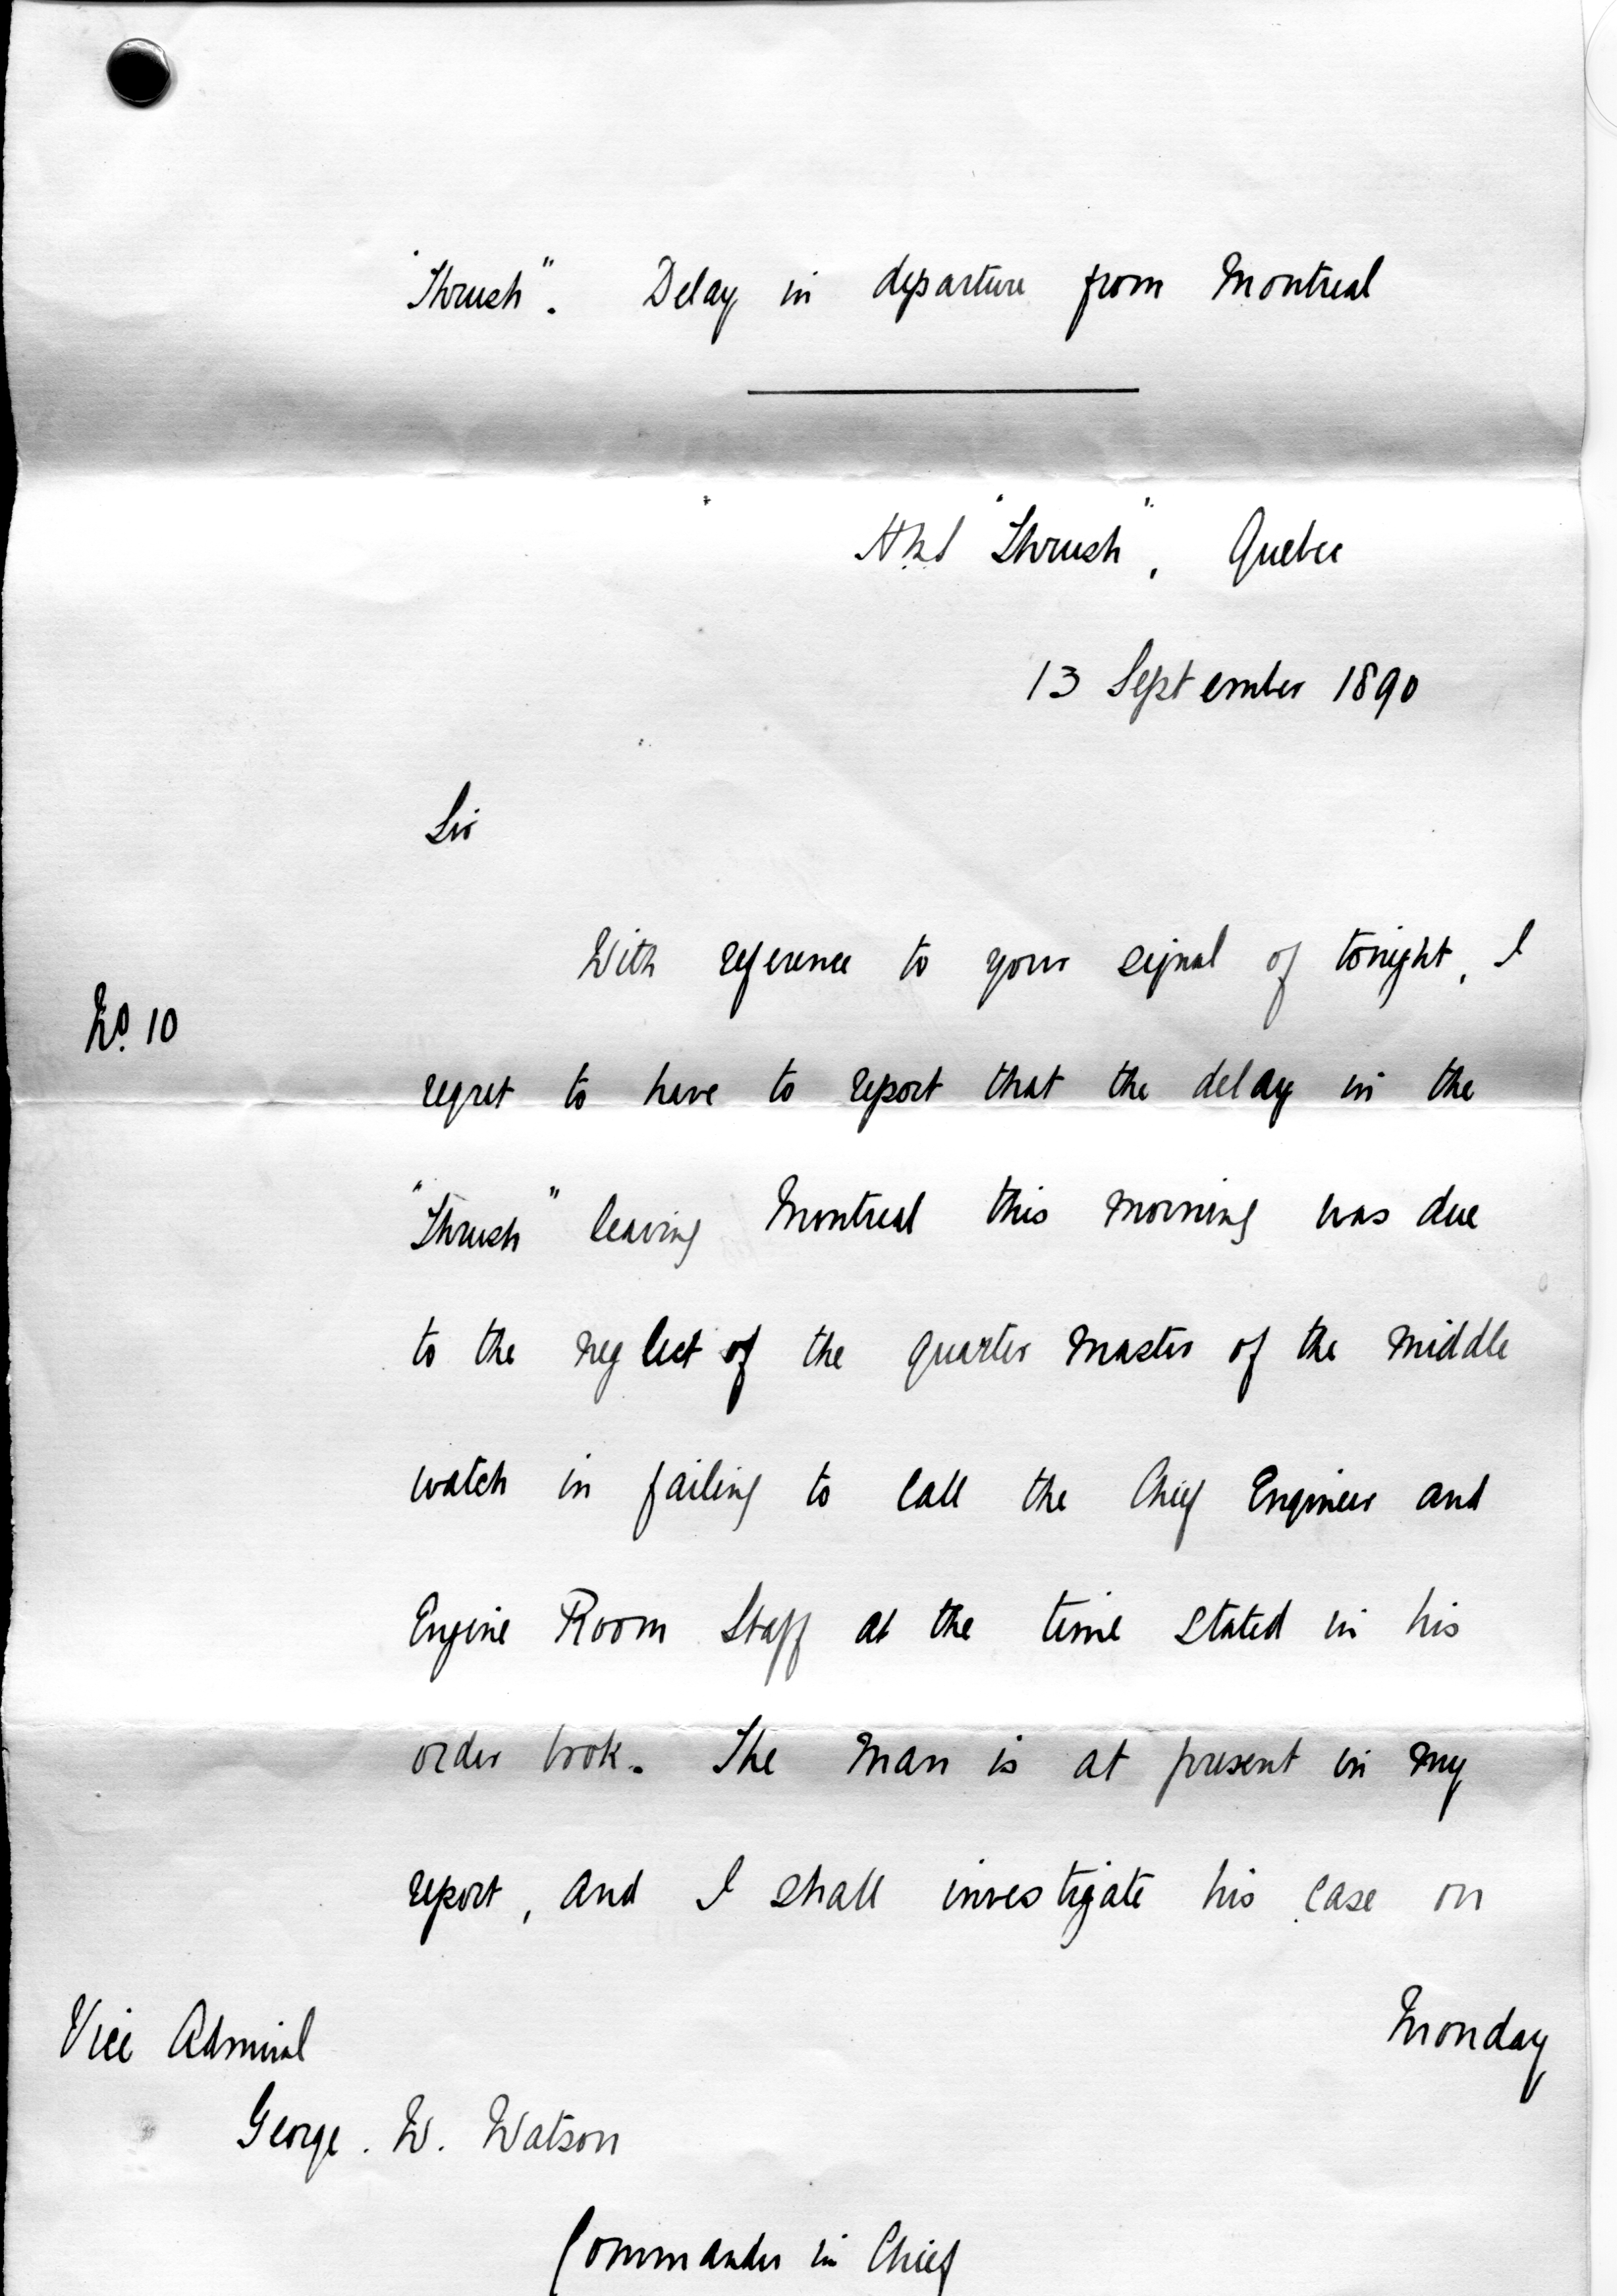 "Thrush". Delay in departure from Montreal
HMS "Thrush", Quebec
13 September 1890
Sir
With reference to your signal of tonight, I
No. 10
regret to have to report that the delay in the
"Thrush" leaving Montreal this morning was due
to the neglect of the quarter master of the middle
watch in failing to call the Chief Engineer and
Engine Room Staff at the time stated in his
order book. The man is at present in my
report, and I shall investigate his case on
Monday
Vice Admiral
George. W. Watson
Commander in Chief